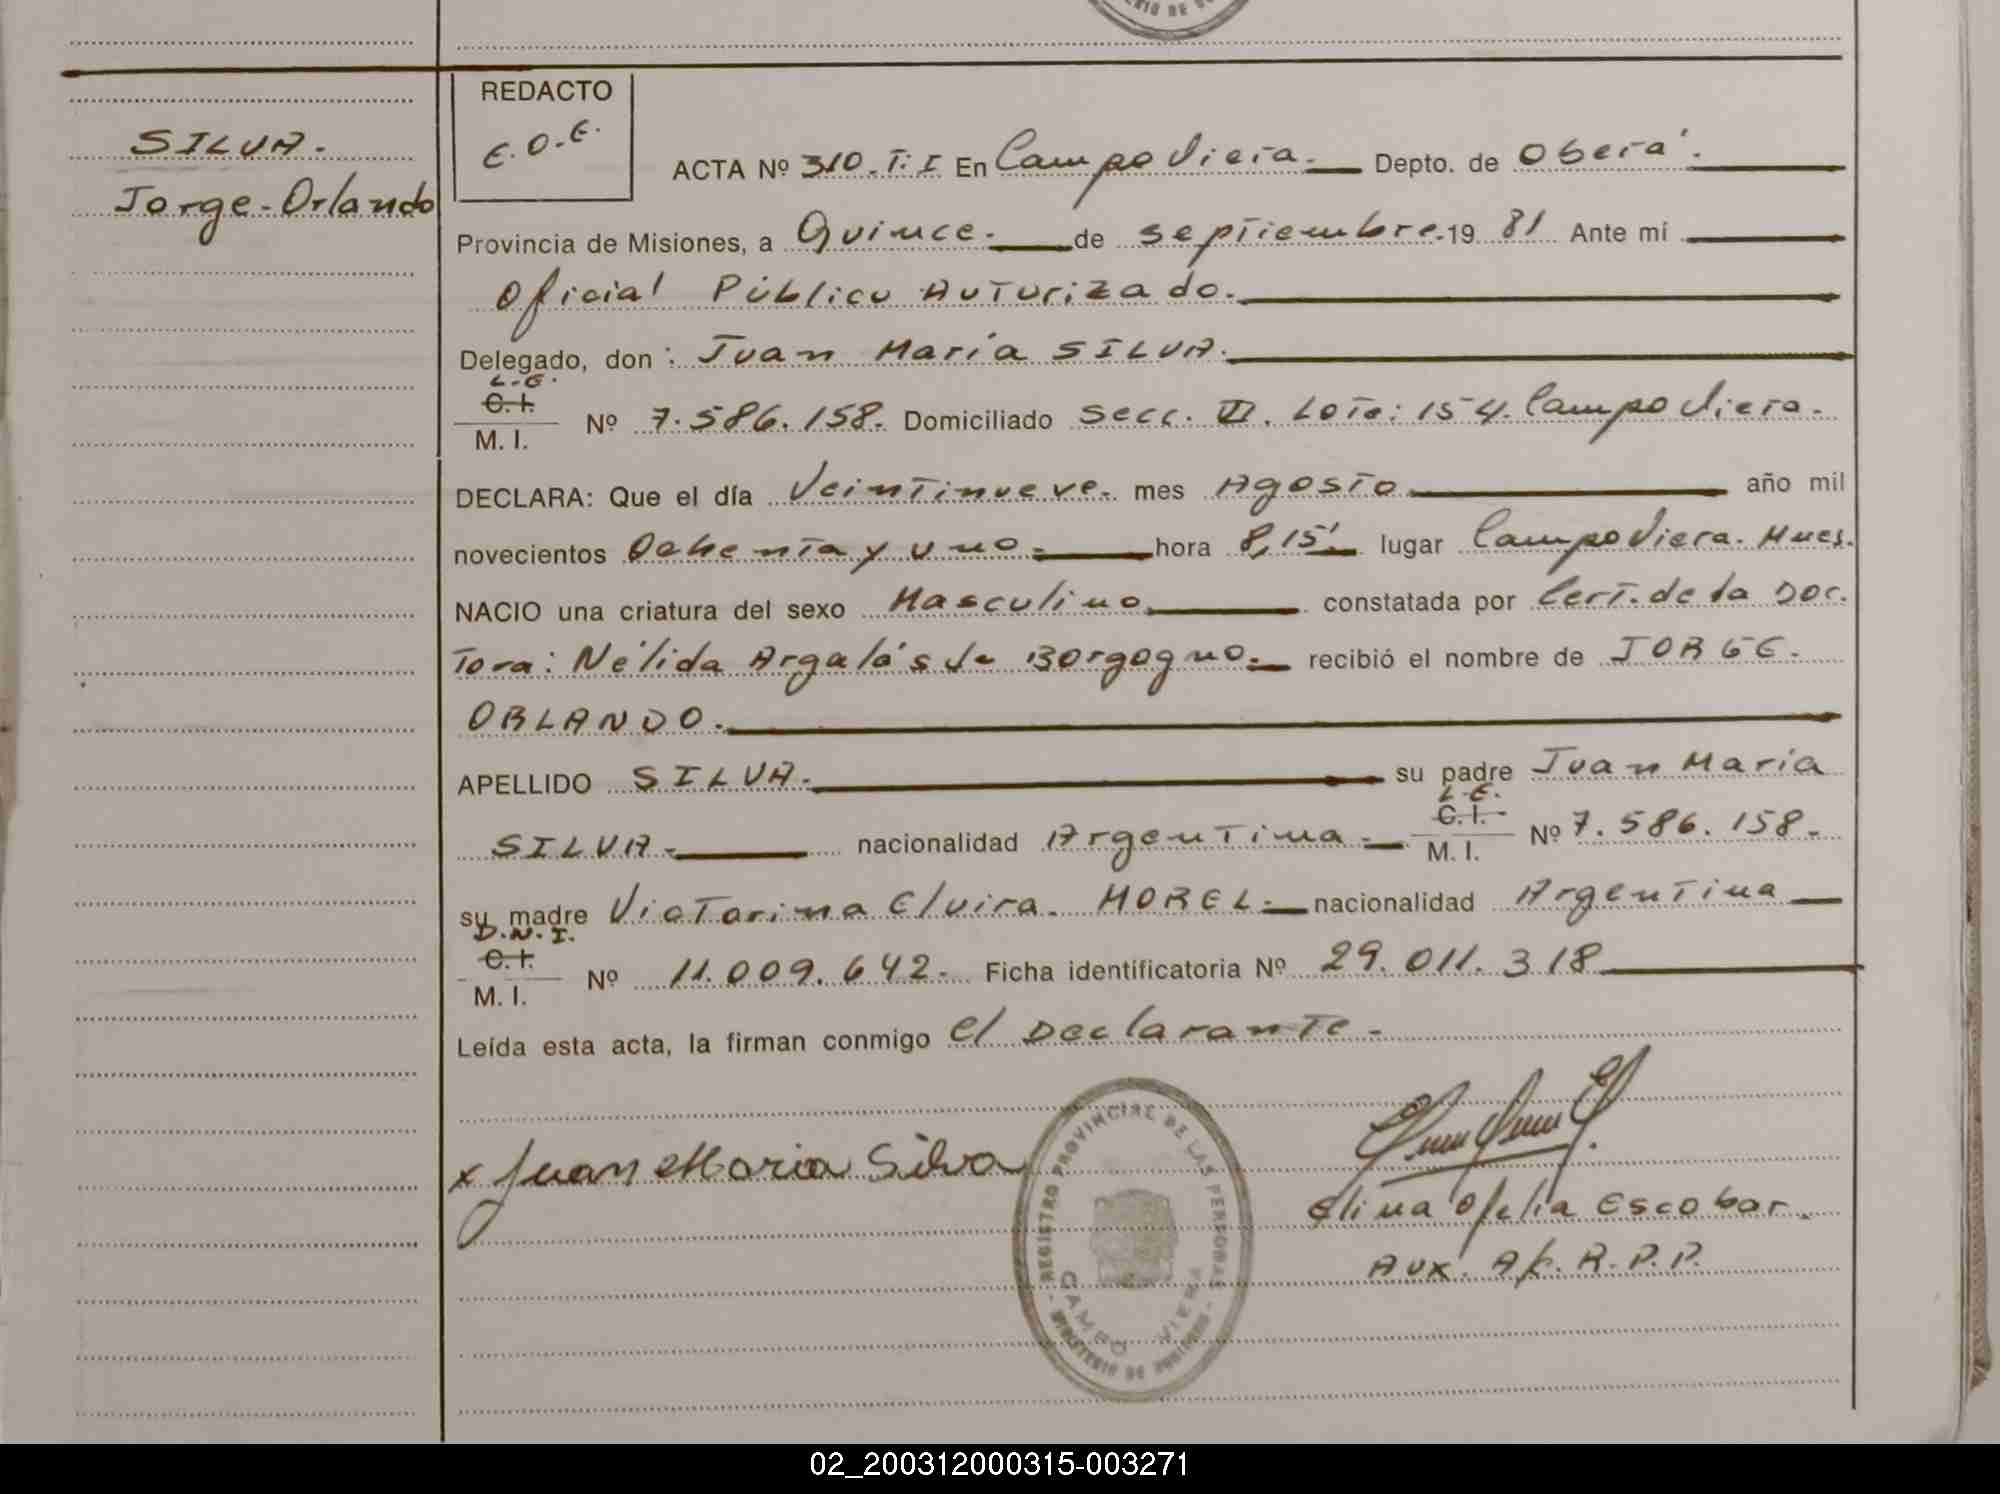 SILVA.
Jorge-Orlando
REDACTO
E.O.E.
ACTA Nº 310.T.I En Campo Viera. Depto. de Oberá.
Provincia de Misiones, a Quince. de septiembre. 19 81 Ante mí
Oficial Público Autorizado.
Delegado, don: Juan María SILVA.
L.E.
C.I.
M. I. Nº 7.586.158. Domiciliado Secc. VI. Lote: 154. Campo Viera.
DECLARA: Que el día Veintinueve. mes Agosto año mil
novecientos Ochenta y uno. hora 8,15' lugar Campo Viera. Mnes.
NACIO una criatura del sexo Masculino constatada por Cert. de la Doc.
tora: Nélida Argalás de Borgogno. recibió el nombre de JORGE.
ORLANDO.
APELLIDO SILVA. su padre Juan María
SILVA nacionalidad Argentina L.E. C.I. M. I. Nº 7.586.158.
su madre Victorina Elvira. MOREL. nacionalidad Argentina
D.N.I.
C.I.
M. I. Nº 11.009.642. Ficha identificatoria Nº 29.011.318
Leída esta acta, la firman conmigo el Declarante.
x Juan Maria Silva
REGISTRO PROVINCIAL DE LAS PERSONAS
CAMPO VIERA
MINISTERIO DE GOBIERNO
Elina Ofelia Escobar.
Aux. Ap. R.P.P.
02_200312000315-003271